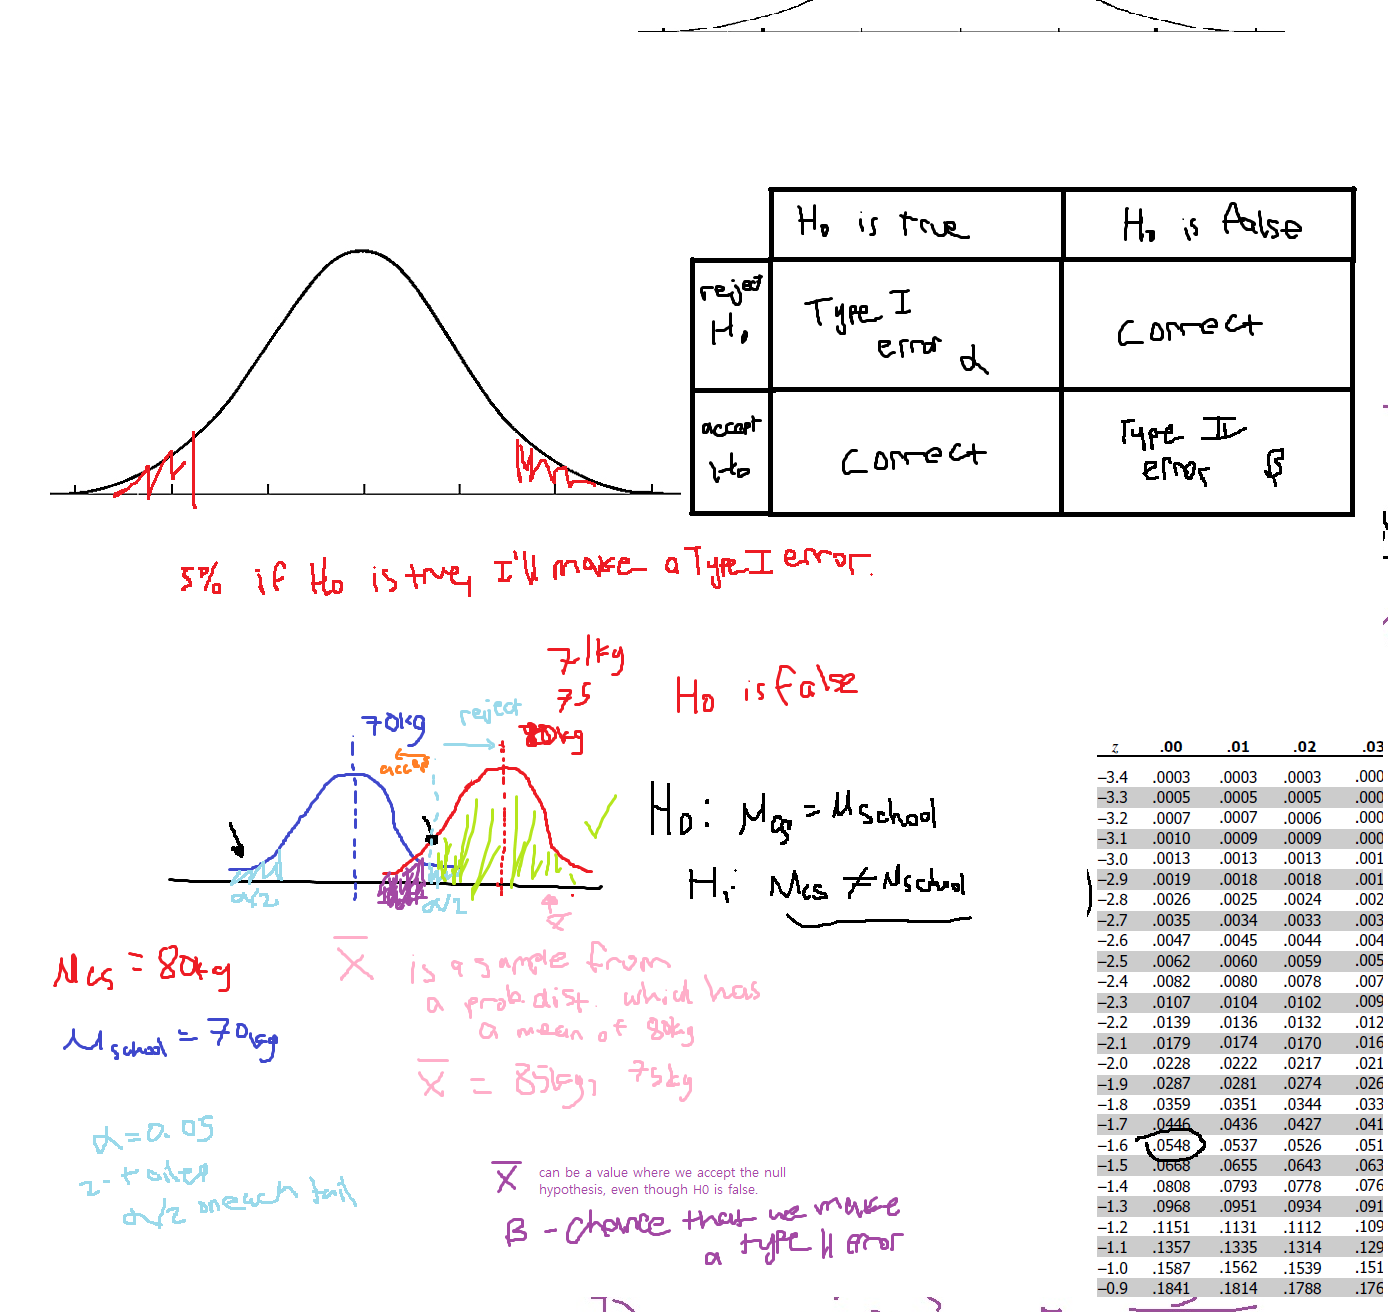 H0 is true
H0 is false
reject
H0
Type I
error α
Correct
accept
H0
Correct
Type II
error β
5% if H0 is true, I'll make a Type I error.
71kg
75
80kg
H0 is false
70kg
reject
accept
α/2
α/2
H0: μcs = μschool
H1: μcs ≠ μschool
μcs = 80kg
μschool = 70kg
x̄
x̄ is a sample from
a prob. dist. which has
a mean of 80kg
x̄ = 85kg, 75kg
α = 0.05
2-tailed
α/2 on each tail
x̄ can be a value where we accept the null
hypothesis, even though H0 is false.
β - chance that we make
a type II error
z .00 .01 .02 .03
–3.4 .0003 .0003 .0003 .000
–3.3 .0005 .0005 .0005 .000
–3.2 .0007 .0007 .0006 .000
–3.1 .0010 .0009 .0009 .000
–3.0 .0013 .0013 .0013 .001
–2.9 .0019 .0018 .0018 .001
–2.8 .0026 .0025 .0024 .002
–2.7 .0035 .0034 .0033 .003
–2.6 .0047 .0045 .0044 .004
–2.5 .0062 .0060 .0059 .005
–2.4 .0082 .0080 .0078 .007
–2.3 .0107 .0104 .0102 .009
–2.2 .0139 .0136 .0132 .012
–2.1 .0179 .0174 .0170 .016
–2.0 .0228 .0222 .0217 .021
–1.9 .0287 .0281 .0274 .026
–1.8 .0359 .0351 .0344 .033
–1.7 .0446 .0436 .0427 .041
–1.6 .0548 .0537 .0526 .051
–1.5 .0668 .0655 .0643 .063
–1.4 .0808 .0793 .0778 .076
–1.3 .0968 .0951 .0934 .091
–1.2 .1151 .1131 .1112 .109
–1.1 .1357 .1335 .1314 .129
–1.0 .1587 .1562 .1539 .151
–0.9 .1841 .1814 .1788 .176